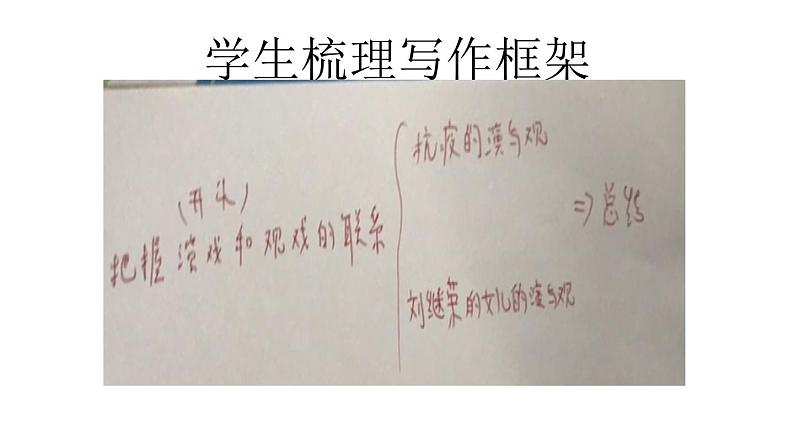 学生梳理写作框架
(开头)
把握演戏和观戏的联系
抗疫的演与观
刘继荣的女儿的演与观
⇒总结